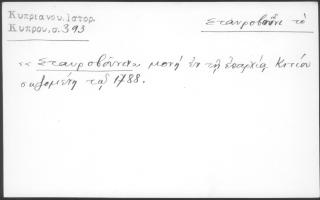 Κυπριανου.Ιστορ.
Κυπρου,σ.393
Σταυροβοῦνι τό
«Σταυροβούνιον» μονή ἐν τῇ ἐπαρχίᾳ Κιτίου
σωζομένη τῷ 1788.